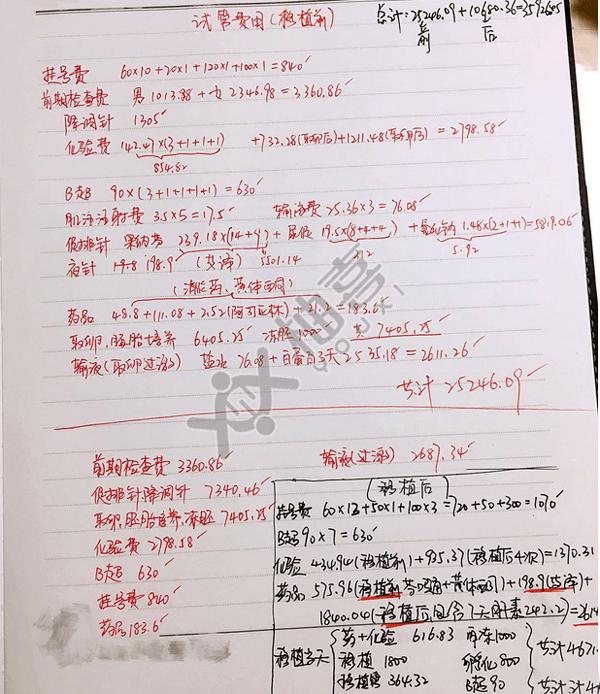 试管费用(移植前)
总计:25246.09+10680.36=35926.45
前 后
挂号费 60×10+20×1+120×1+100×1=840
前期检查费 男1013.88+女2346.98=3360.86
降调针 1305
化验费 142.47×(3+1+1+1) +732.28(取卵前)+1211.48(取卵后)=2798.58
854.82
B超 90×(3+1+1+1+1)=630
肌注注射费 3.5×5=17.5 输液费 25.36×3=76.08
促排针 果纳芬 239.18×(14+9)+尿促 19.5×(8+4+4)+氯化钠 1.48×(2+1+1)=5819.06
夜针 198.9 (艾泽) 5501.14 312 5.92
(消炎药、黄体酮)
药品 48.8+111.08+2.52(阿司匹林)+21.2=183.6
取卵,胚胎培养 6405.25 冻胚1000 共7405.25
输液(取卵过激) 盐水 76.08+白蛋白3天2535.18=2611.26
共计 25246.09
前期检查费 3360.86 输液(过激) 2687.34
促排针降调针 7340.46
取卵,胚胎培养,冻胚 7405.25
化验费 2798.58
B超 630
挂号费 840
药品 183.6
移植后
挂号费 60×12+50×1+100×3=720+50+300=1070
B超 90×7=630
化验 434.94(移植前)+935.37(移植后4次)=1370.31
药品 575.96(移植前芬吗通+黄体酮)+198.9(艾泽)+
1840.04(移植后,包含7天肝素242.2)=2614
移植当天 药+化验 616.83 解冻1000
移植 1800 孵化800 共计4671.
移植管 364.32 B超90 共计